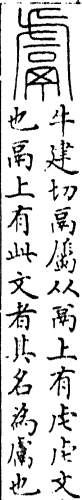 鬳
牛建切鬲屬从鬲上有虍虍文
也鬲上有此文者其名為鬳也